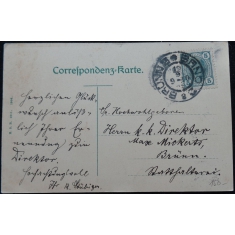 Correspondenz-Karte.
BRÜNN 8 BRNO
5
Herzlichen Glück-
wunsch anläß-
lich Ihrer Er-
nennung zum
Direktor.
Hochachtungsvoll
Sr. Hochwohlgeboren
Herrn k. k. Direktor
Max
Brünn.
Statthalterei.